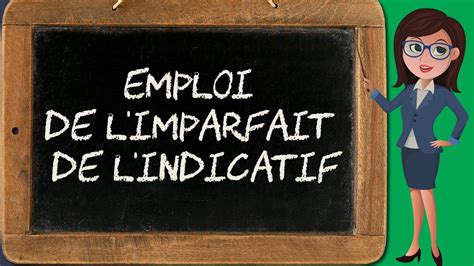 EMPLOI
DE L'IMPARFAIT
DE L'INDICATIF